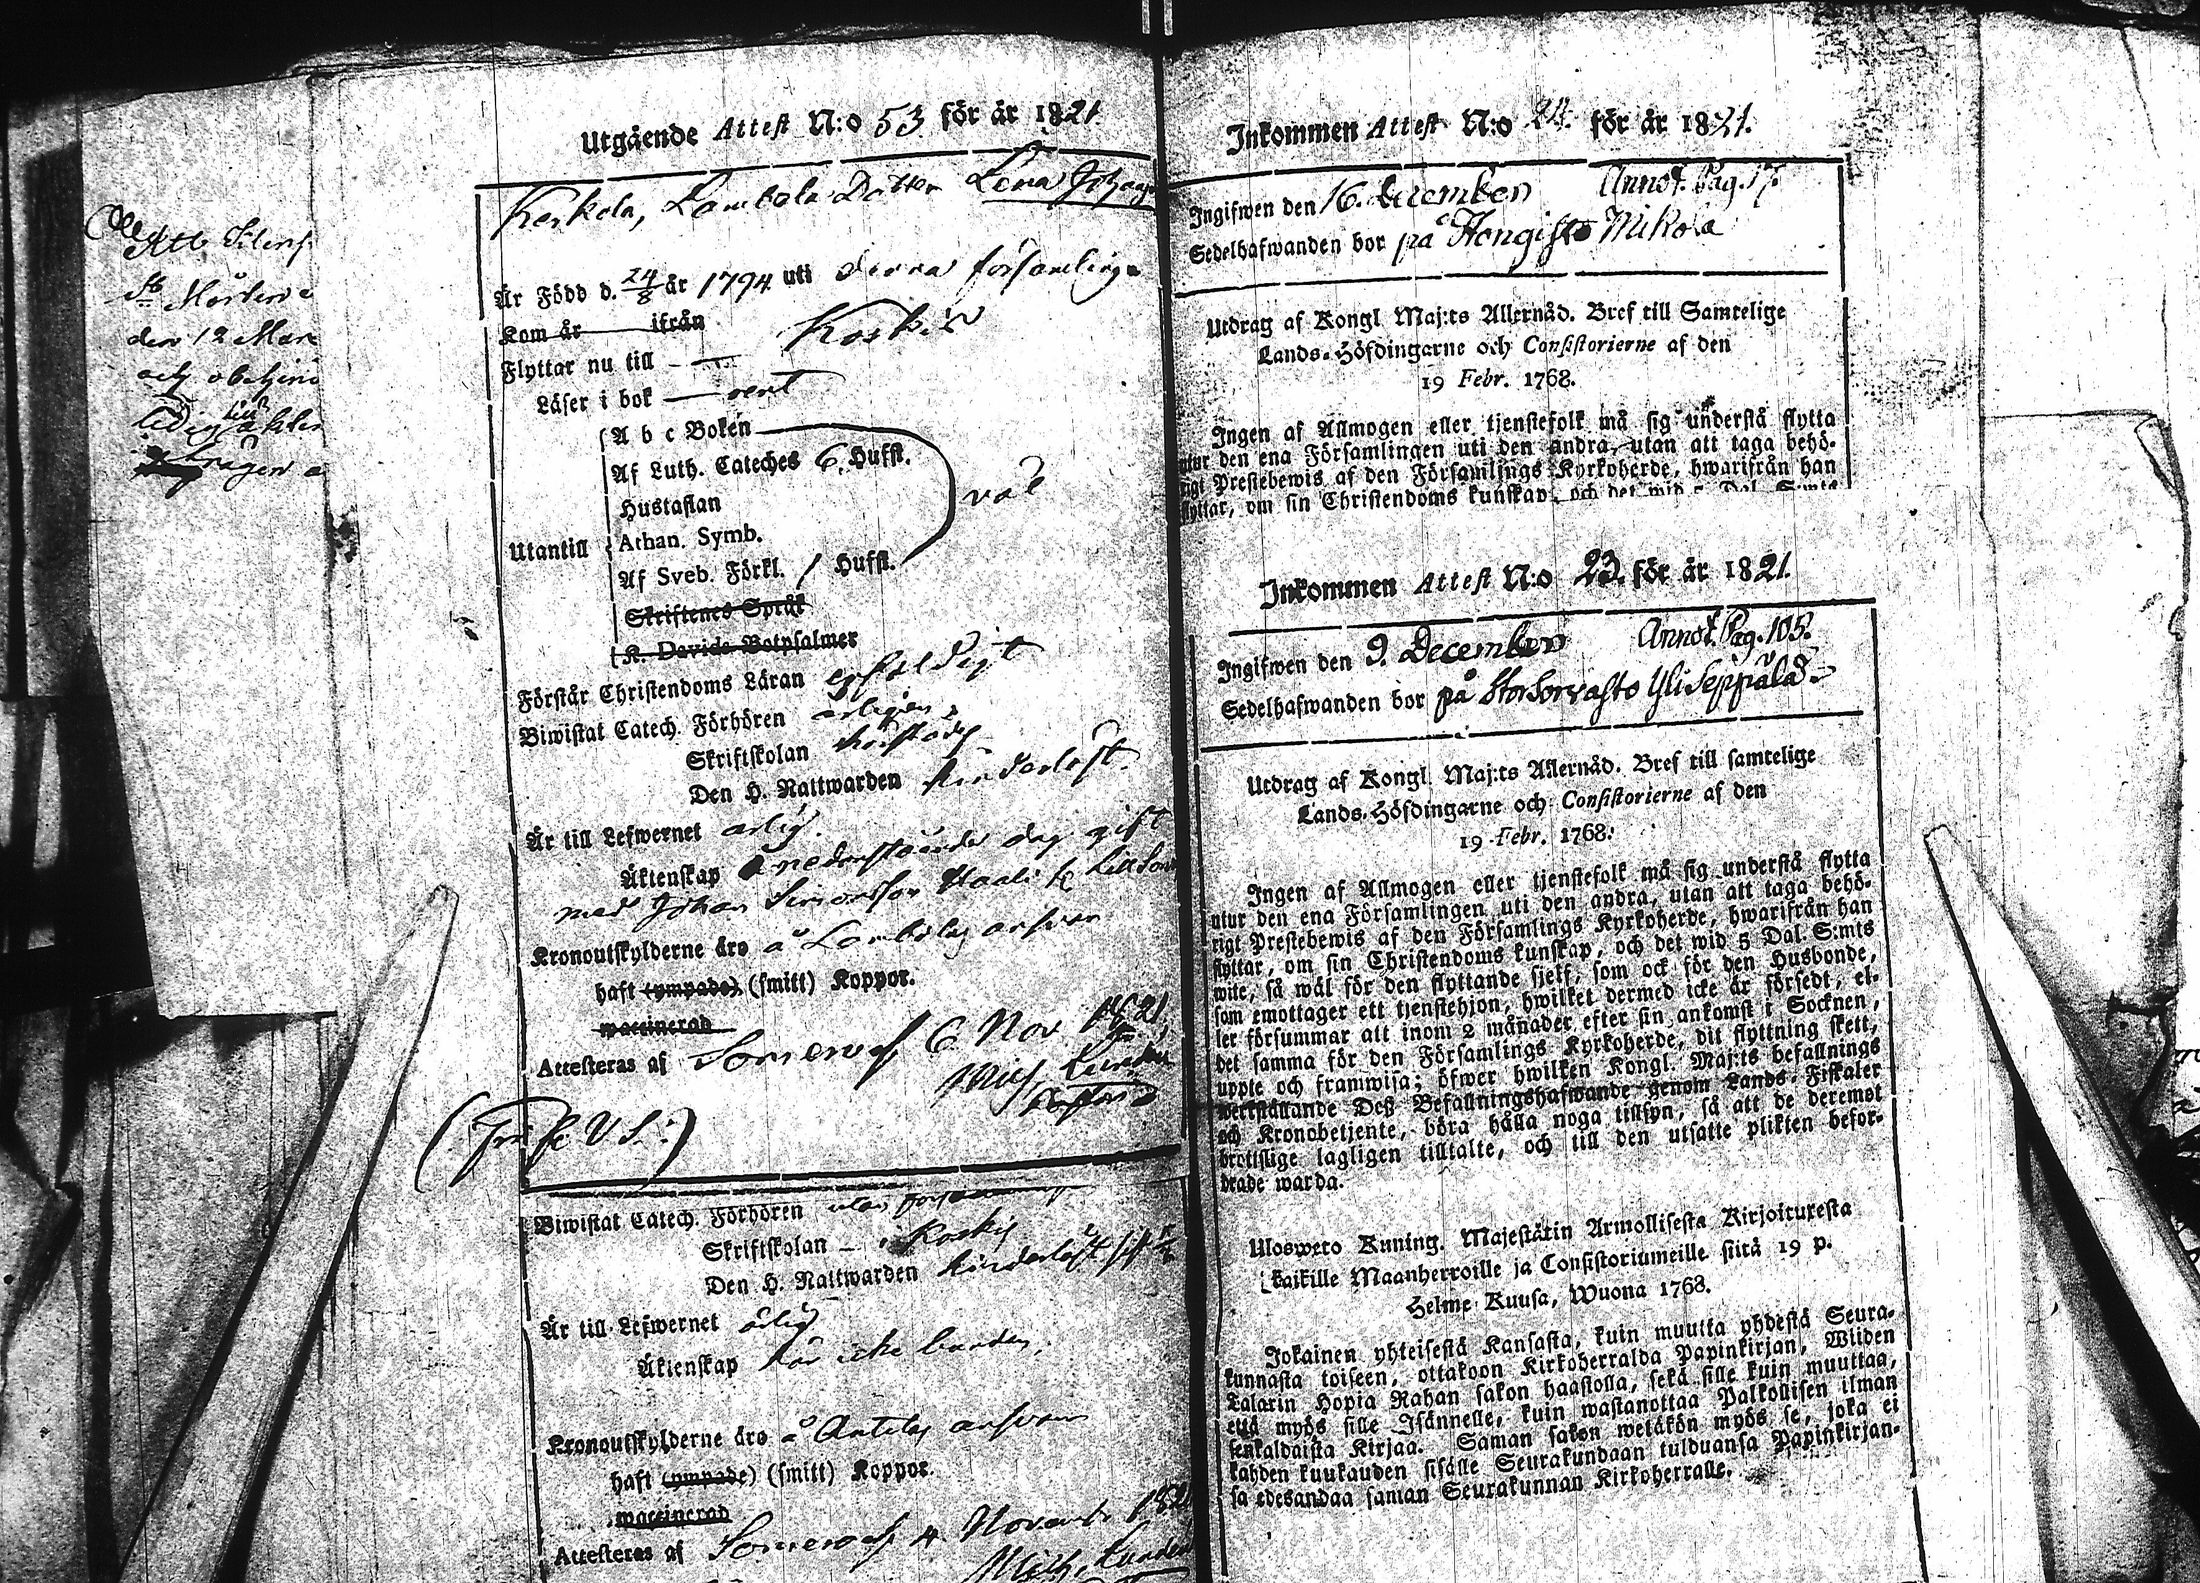 Att
Mårten
den 12 Mar
och obehin
ledig till
frågen
Utgående Attest N:o 53 för år 1821
Koskola, Lambola Dotter Lena Johans
Är Född d. 24/8 år 1794 uti denna församling
Kom år ifrån
Flyttar nu till Koskis
Läser i bok rent
Utantill
A b c Boken
Af Luth. Cateches 6. Hufst.
Hustaflan
Athan. Symb.
Af Sveb. Förkl. / Hufst.
väl
Skriftenes Språk
K. Davids Botpsalmer
Förstår Christendoms Läran enfaldigt
Biwistat Catech. Förhören årligen
Skriftskolan
Den H. Nattwarden hinderlöst.
Är till Lefwernet ärlig.
Äktenskap nedanstående dag gift
med Johan Simonsson
Kronoutskylderne äro å Lambolas answar
haft (ympade) (smitt) Koppor.
waccinerad
Attesteras af Somero d. 6 Nov 1821
Mich. Lunden
Pastor
( V. S.)
Biwistat Catech. Förhören utan
Skriftskolan – i Koskis
Den H. Nattwarden hinderlöst sist
Är till Lefwernet ärlig
Äktenskap här icke bunden.
Kronoutskylderne äro å Antilas answar
haft (ympade) (smitt) Koppor.
waccinerad
Attesteras af Somero d. 4 Novemb. 1821
Mich. Lunden
Inkommen Attest N:o 24. för år 1821.
Ingifwen den 16. december Annot. Pag. 17.
Sedelhafwanden bor på Hongisto Mikola
Utdrag af Kongl. Maj:ts Allernåd. Bref till Samtelige
Lands-Höfdingarne och Consistorierne af den
19 Febr. 1768.
Ingen af Allmogen eller tjenstefolk må sig understå flytta
utur den ena Församlingen uti den andra, utan att taga behö-
rigt Prestebewis af den Församlings Kyrkoherde, hwarifrån han
flyttar, om sin Christendoms kunskap, och det wid 5 Dal. S:mts
Inkommen Attest N:o 23. för år 1821.
Ingifwen den 9. December Annot. Pag. 105.
Sedelhafwanden bor på Storsorvasto Yliseppälä
Utdrag af Kongl. Maj:ts Allernåd. Bref till samtelige
Lands-Höfdingarne och Consistorierne af den
19 Febr. 1768.
Ingen af Allmogen eller tjenstefolk må sig understå flytta
utur den ena Församlingen uti den andra, utan att taga behö-
rigt Prestebewis af den Församlings Kyrkoherde, hwarifrån han
flyttar, om sin Christendoms kunskap, och det wid 5 Dal. S:mts
wite, så wäl för den flyttande sjelf, som ock för den Husbonde,
som emottager ett tjenstehjon, hwilket dermed icke är försedt, el-
ler försummar att inom 2 månader efter sin ankomst i Socknen,
det samma för den Församlings Kyrkoherde, dit flyttning skett,
uppte och framwisa; öfwer hwilken Kongl. Maj:ts befallnings
werkställande Deß Befallningshafwande genom Lands-Fiskaler
och Kronobetjente, böra hålla noga tillsyn, så att de deremot
brottslige lagligen tilltalte, och till den utsatte plikten befor-
drade warda.
Uloswero Kuning. Majestätin Armollisesta Kirjoituxesta
kaikille Maanherroille ja Consistoriumeille siitä 19 p.
Helme Kuusa, Wuona 1768.
Jokainen yhteisestä Kansasta, kuin muutta yhdestä Seura-
kunnasta toiseen, ottakoon Kirkoherralda Papinkirjan, Wiiden
Talarin Hopia Rahan sakon haastolla, sekä sille kuin muuttaa,
että myös sille Isännelle, kuin wastanottaa Palkollisen ilman
senkaldaista Kirjaa. Saman sakon wetäkön myös se, joka ei
kahden kuukauden sisälle Seurakundaan tulduansa Papinkirjan-
sa edesandaa saman Seurakunnan Kirkoherralle.